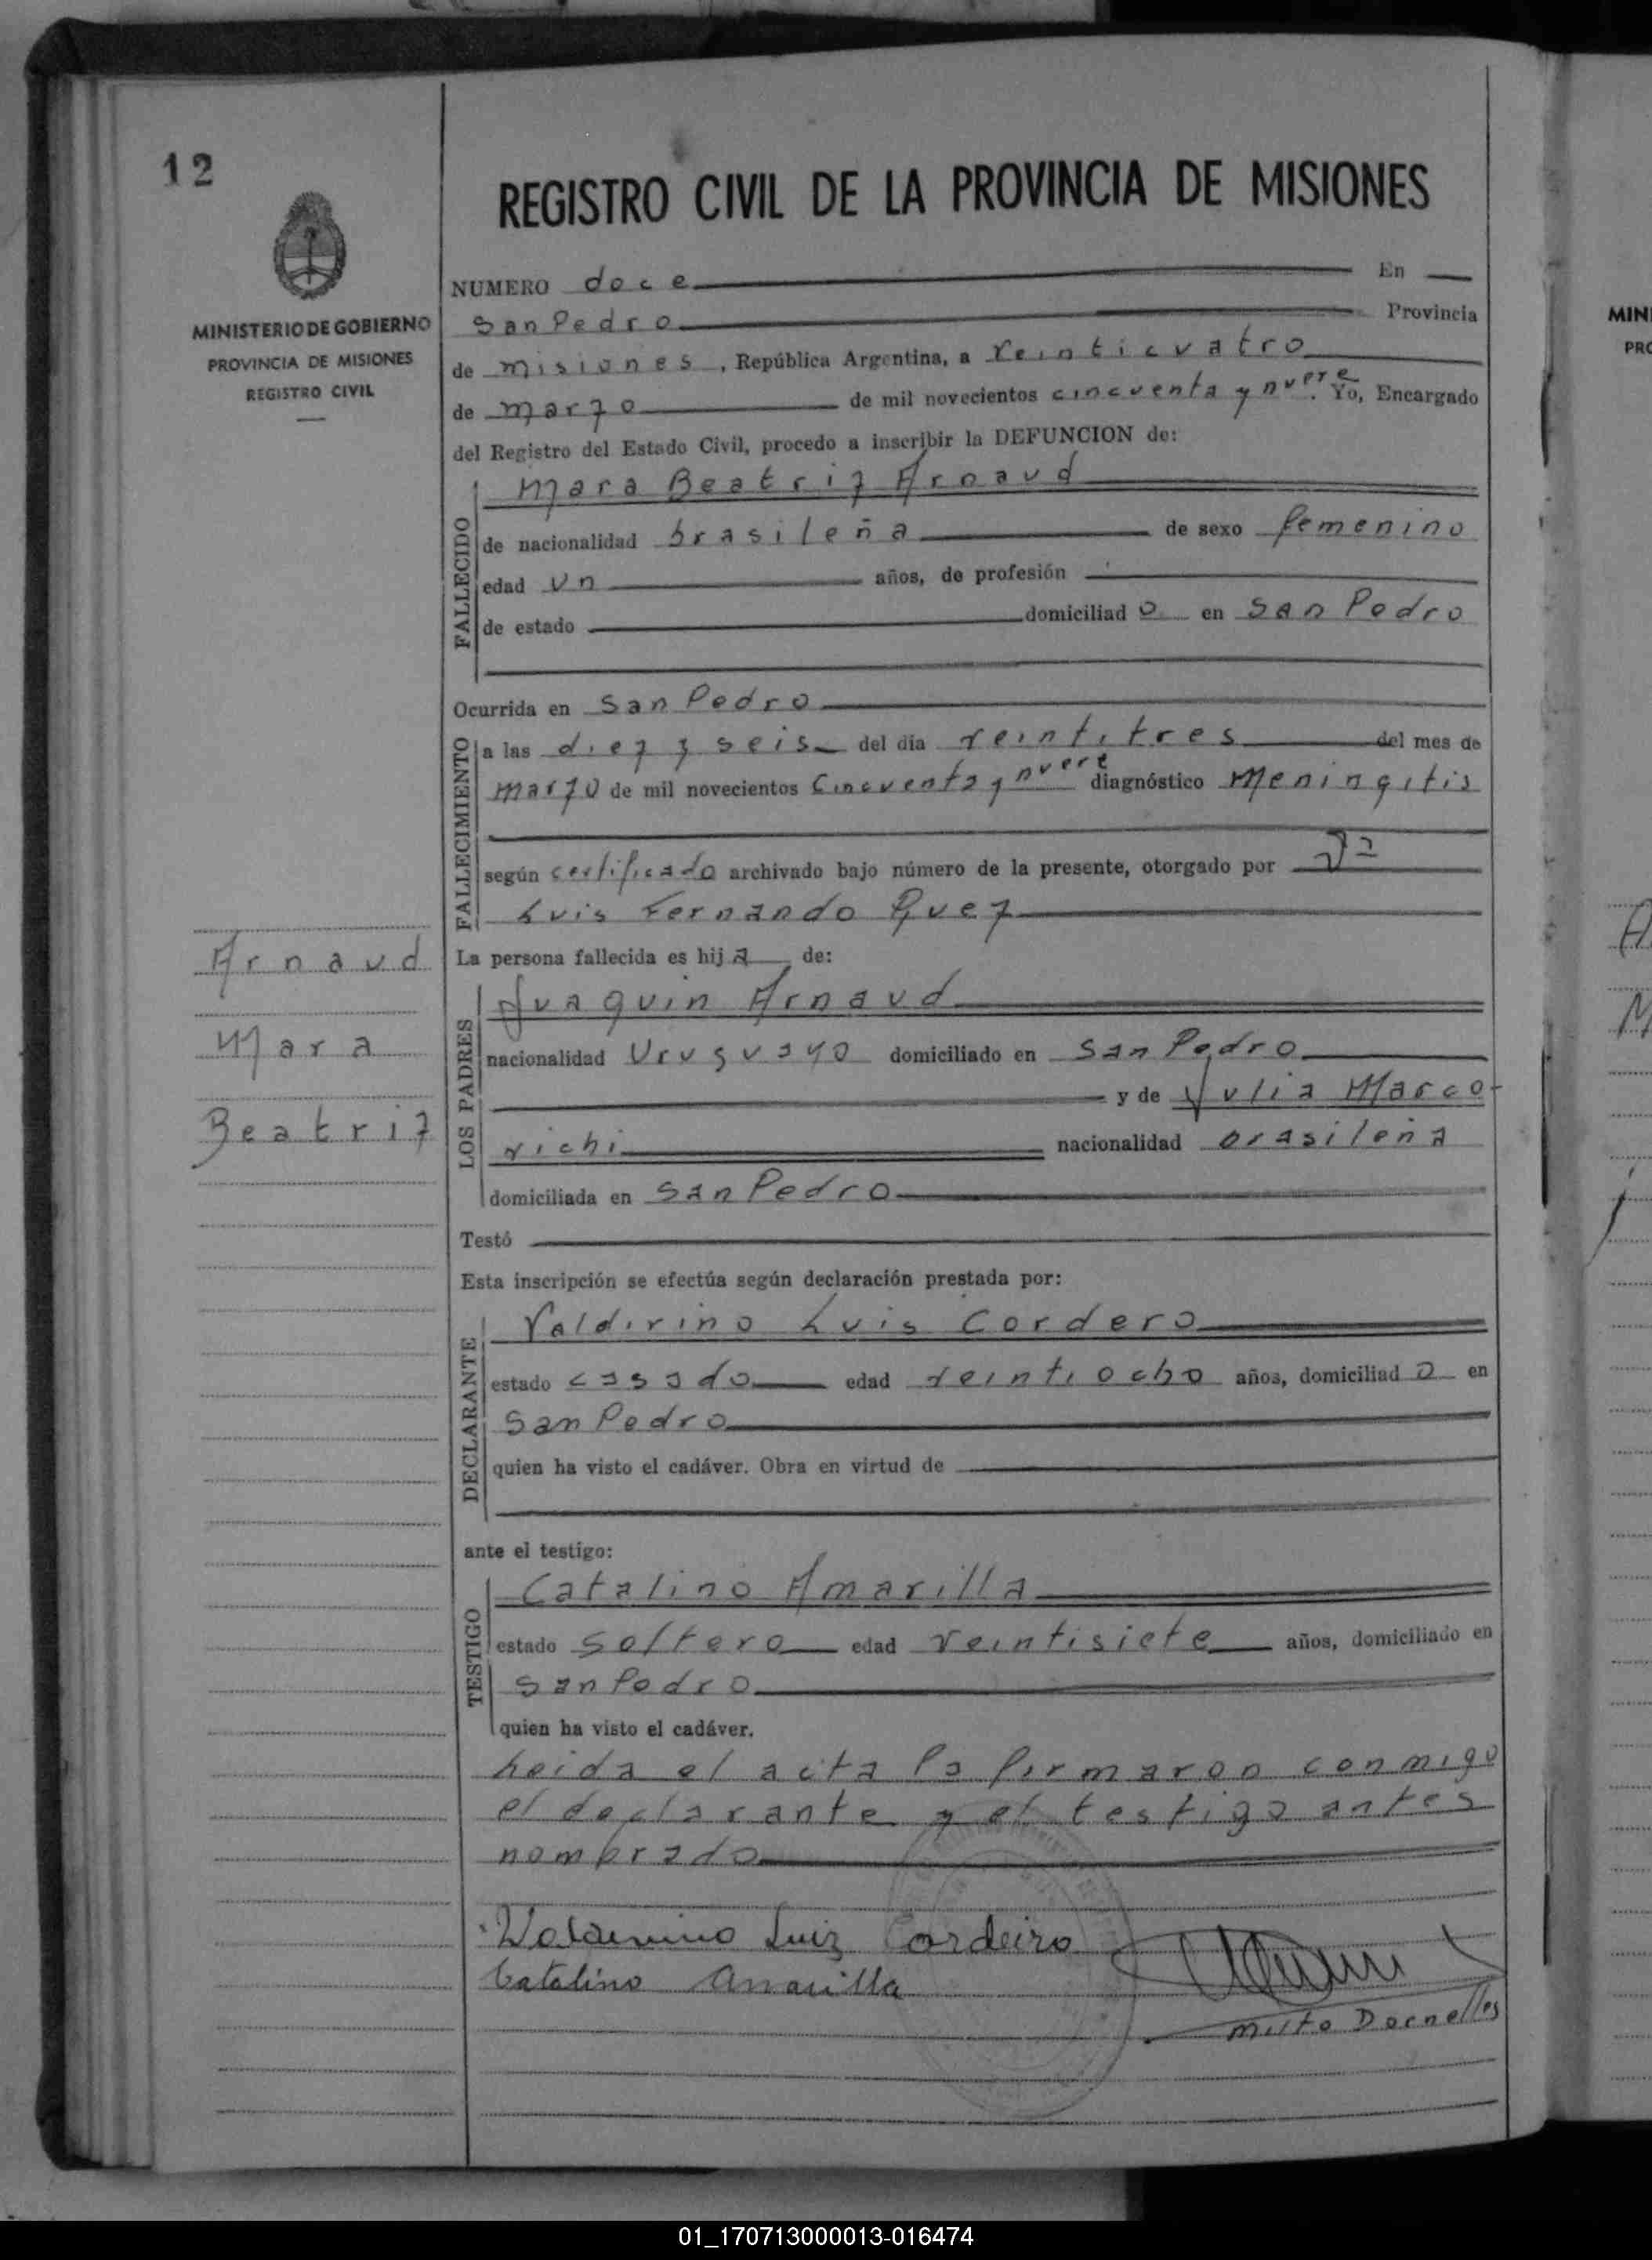 12
REGISTRO CIVIL DE LA PROVINCIA DE MISIONES
MINISTERIO DE GOBIERNO
PROVINCIA DE MISIONES
REGISTRO CIVIL
NUMERO doce En
San Pedro Provincia
de misiones, República Argentina, a veinticuatro
de marzo de mil novecientos cincuenta y nueve. Yo, Encargado
del Registro del Estado Civil, procedo a inscribir la DEFUNCION de:
FALLECIDO
Mara Beatriz Arnaud
de nacionalidad brasileña de sexo femenino
edad un años, de profesión
de estado domiciliad o en San Pedro
Ocurrida en San Pedro
FALLECIMIENTO
a las diez y seis del día veintitres del mes de
marzo de mil novecientos cincuenta y nueve diagnóstico Meningitis
según certificado archivado bajo número de la presente, otorgado por
Luis Fernando
Arnaud
Mara
Beatriz
La persona fallecida es hij a de:
LOS PADRES
Juaquin Arnaud
nacionalidad Uruguayo domiciliado en San Pedro
y de Julia Marco-
vichi nacionalidad brasileña
domiciliada en San Pedro
Testó
Esta inscripción se efectúa según declaración prestada por:
DECLARANTE
Valdivino Luis Cordero
estado casado edad veintiocho años, domiciliad o en
San Pedro
quien ha visto el cadáver. Obra en virtud de
ante el testigo:
TESTIGO
Catalino Amarilla
estado soltero edad veintisiete años, domiciliado en
San Pedro
quien ha visto el cadáver.
Leida el acta la firmaron conmigo
el declarante y el testigo antes
nombrado
Luiz Cordeiro
Catalino Amarilla
Dornelles
MIN
PRO
01_170713000013-016474